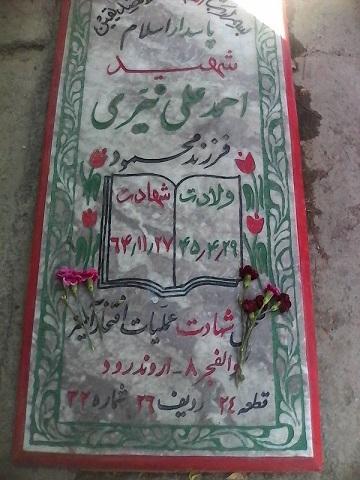 پاسدار اسلام
شهید
احمد علی نیّری
فرزند محمود
ولادت
۴۵٫۴٫۲۹
شهادت
۶۴٫۱۱٫۲۷
شهادت عملیات افتخار آفرین
والفجر ۸ - اروندرود
قطعه ۲۴ ردیف ۲۶ شماره ۳۲